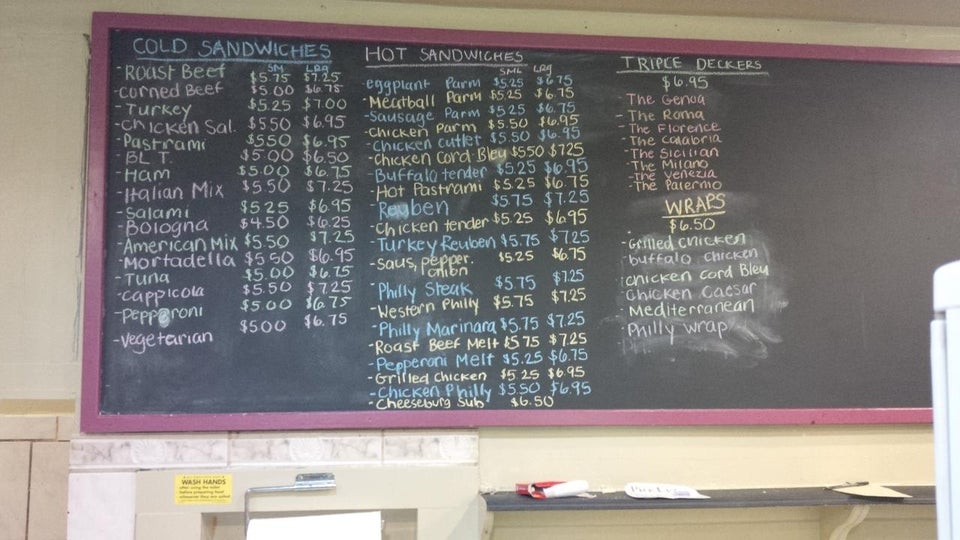 COLD SANDWICHES
SM LRG
-Roast Beef $5.75 $7.25
-Corned Beef $5.00 $6.75
-Turkey $5.25 $7.00
-Chicken Sal. $5.50 $6.95
-Pastrami $5.50 $6.95
-BL T. $5.00 $6.50
-Ham $5.00 $6.75
-Italian Mix $5.50 $7.25
-Salami $5.25 $6.95
-Bologna $4.50 $6.25
-American Mix $5.50 $7.25
-Mortadella $5.50 $6.95
-Tuna $5.00 $6.75
-Cappicola $5.50 $7.25
-Pepperoni $5.00 $6.75
-Vegetarian $5.00 $6.75
HOT SANDWICHES
SML LRG
-eggplant Parm $5.25 $6.75
-Meatball Parm $5.25 $6.75
-Sausage Parm $5.25 $6.75
-Chicken Parm $5.50 $6.95
-Chicken cutlet $5.50 $6.95
-Chicken Cord Bleu $5.50 $7.25
-Buffalo tender $5.25 $6.95
-Hot Pastrami $5.25 $6.75
-Reuben $5.75 $7.25
-Chicken tender $5.25 $6.95
-Turkey Reuben $5.75 $7.25
-Saus, pepper. $5.25 $6.75
onion
-Philly Steak $5.75 $7.25
-Western Philly $5.75 $7.25
-Philly Marinara $5.75 $7.25
-Roast Beef Melt $5.75 $7.25
-Pepperoni Melt $5.25 $6.75
-Grilled Chicken $5.25 $6.95
-Chicken Philly $5.50 $6.95
-Cheeseburg Sub $6.50
TRIPLE DECKERS
$6.95
-The Genoa
-The Roma
-The Florence
-The Calabria
-The Sicilian
-The Milano
-The Venezia
-The Palermo
WRAPS
$6.50
-Grilled Chicken
-buffalo chicken
-Chicken Cord Bleu
-Chicken Caesar
-Mediterranean
-Philly wrap
WASH HANDS
after using the toilet
before preparing food